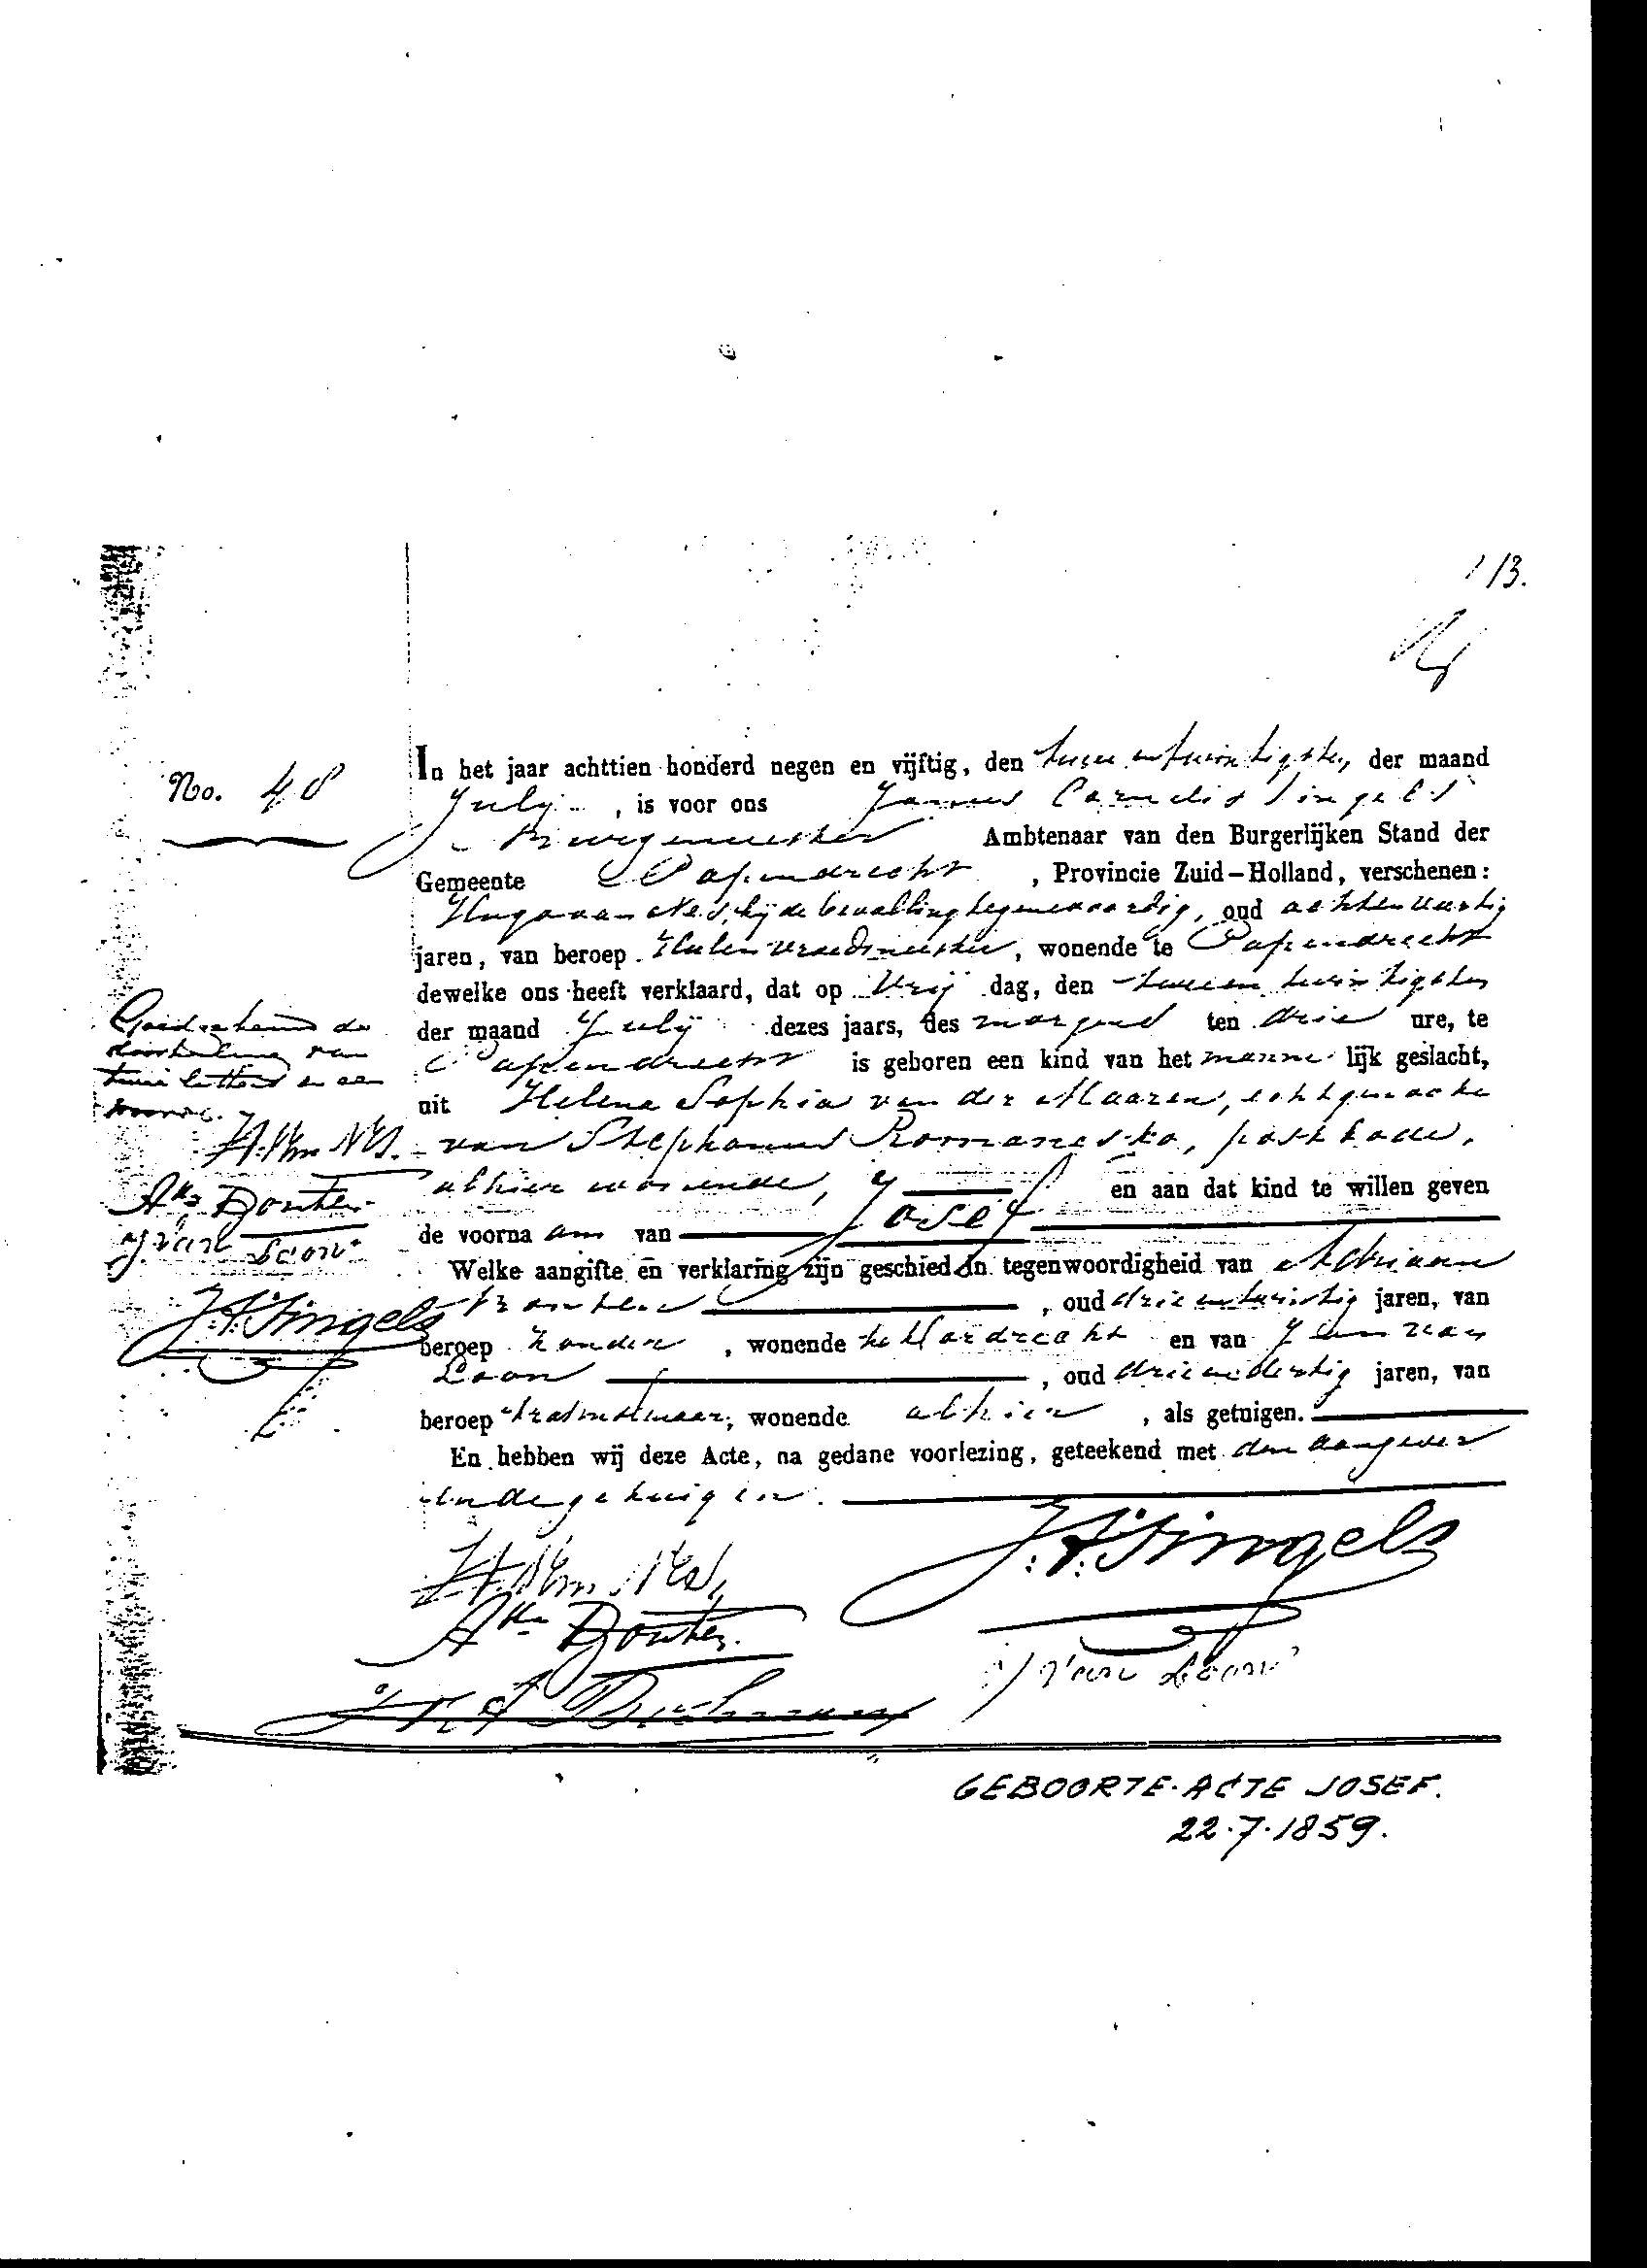 113.
No. 48
In het jaar achttien honderd negen en vijftig, den twee en twintigsten, der maand
July, is voor ons Cornelis Singels
Burgemeester Ambtenaar van den Burgerlijken Stand der
Gemeente Papendrecht, Provincie Zuid-Holland, verschenen:
Hugo van Nes, bij de bevalling tegenwoordig, oud achtenveertig
jaren, van beroep Heelen Vroedmeester, wonende te Papendrecht
dewelke ons heeft verklaard, dat op Vrij dag, den twee en twintigsten
der maand July dezes jaars, des morgens ten drie ure, te
Papendrecht is geboren een kind van het manne lijk geslacht,
uit Helena Sophia van der Maaren, echtgenoote
van Stephanus Romanesko, postbode,
alhier wonende, en aan dat kind te willen geven
de voorna am van Josef
Welke aangifte en verklaring zijn geschied in tegenwoordigheid van Adriaan
Bouter, oud drie en twintig jaren, van
beroep zonder, wonende te Dordrecht en van Jan van
Loon, oud drie en dertig jaren, van
beroep, wonende alhier, als getuigen.
En hebben wij deze Acte, na gedane voorlezing, geteekend met den aangever
en de getuigen.
Goedgekeurd de
doorhaling van
twee letters en een
woord.
H. van Nes.
Aⁿ Bouter
J van Loon
J. C. Singels
H. van Nes,
J. C. Singels
Aⁿ Bouter.
J van Loon
GEBOORTE-ACTE JOSEF.
22.7.1859.